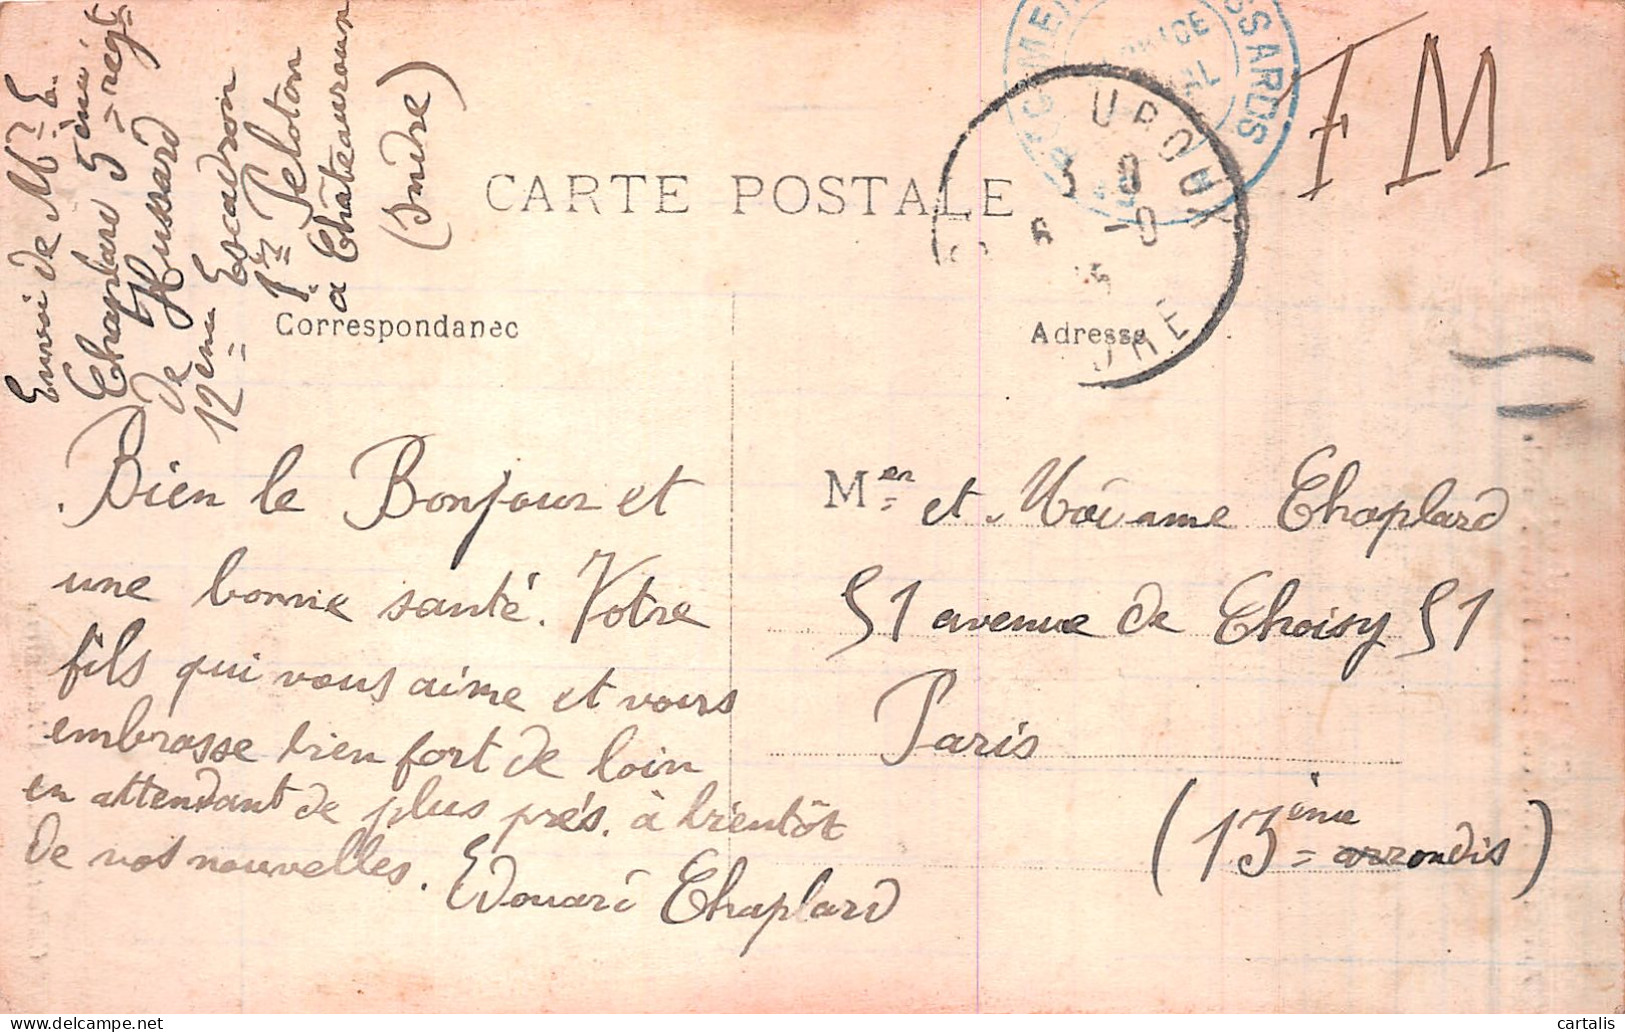 Envoi de Mr E.
Chaplard 5ème régt
de Hussard
12eme Escadron
1er Peloton
a Châteauroux
(Indre)
CARTE POSTALE
F M
SSARDS
UROUX
DRE
Correspondanec
Adresse
Bien le Bonjour et
une bonne santé. Votre
fils qui vous aime et vous
embrasse bien fort de loin
en attendant de plus prés. à bientôt
de vos nouvelles. Edouard Chaplard
Mer et Madame Chaplard
51 avenue de Choisy 51
Paris
(13ème arrondis)
cartalis